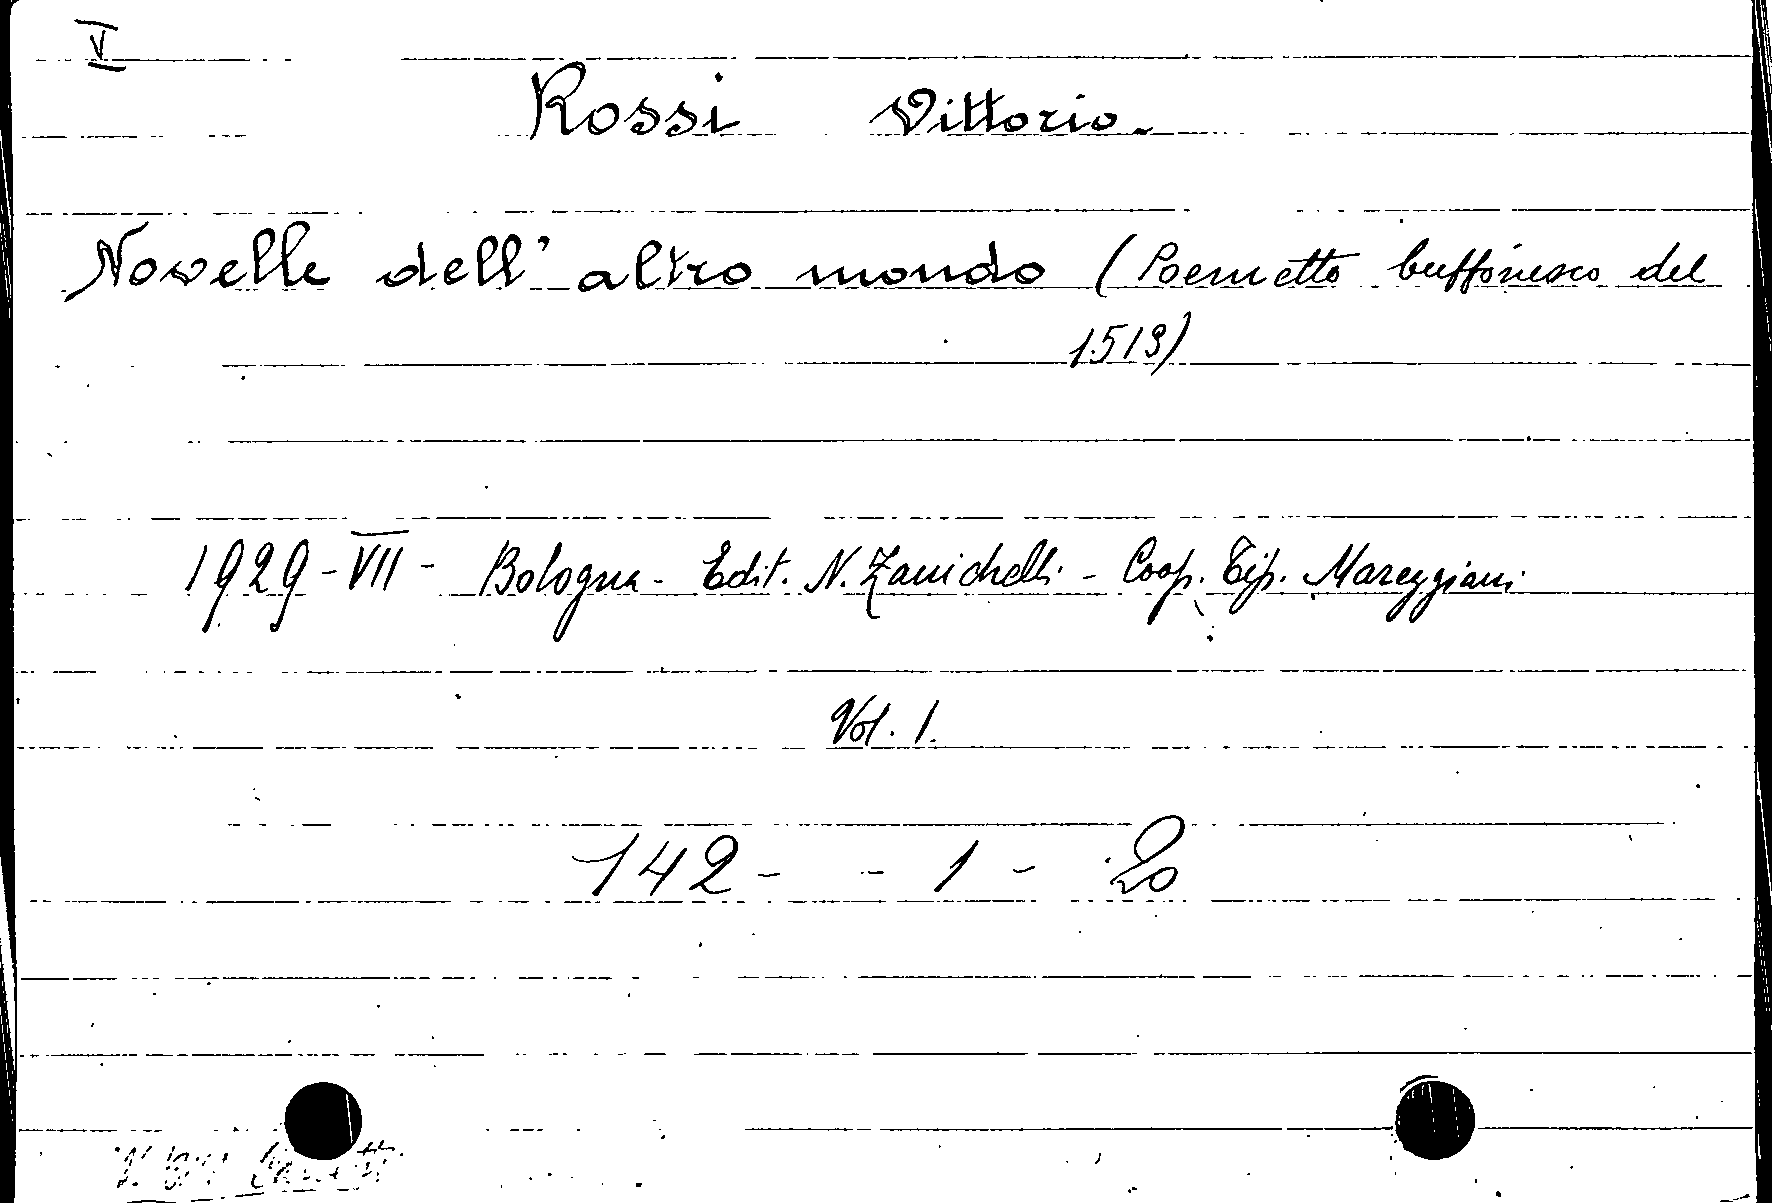 V
Rossi Vittorio.
Novelle dell' altro mondo (Poemetto buffonesco del
1513)
1929-VII- Bologna- Edit. N. Zanichelli - Coop. Tip. Mareggiani
Vol. 1.
142- - 1 - 20